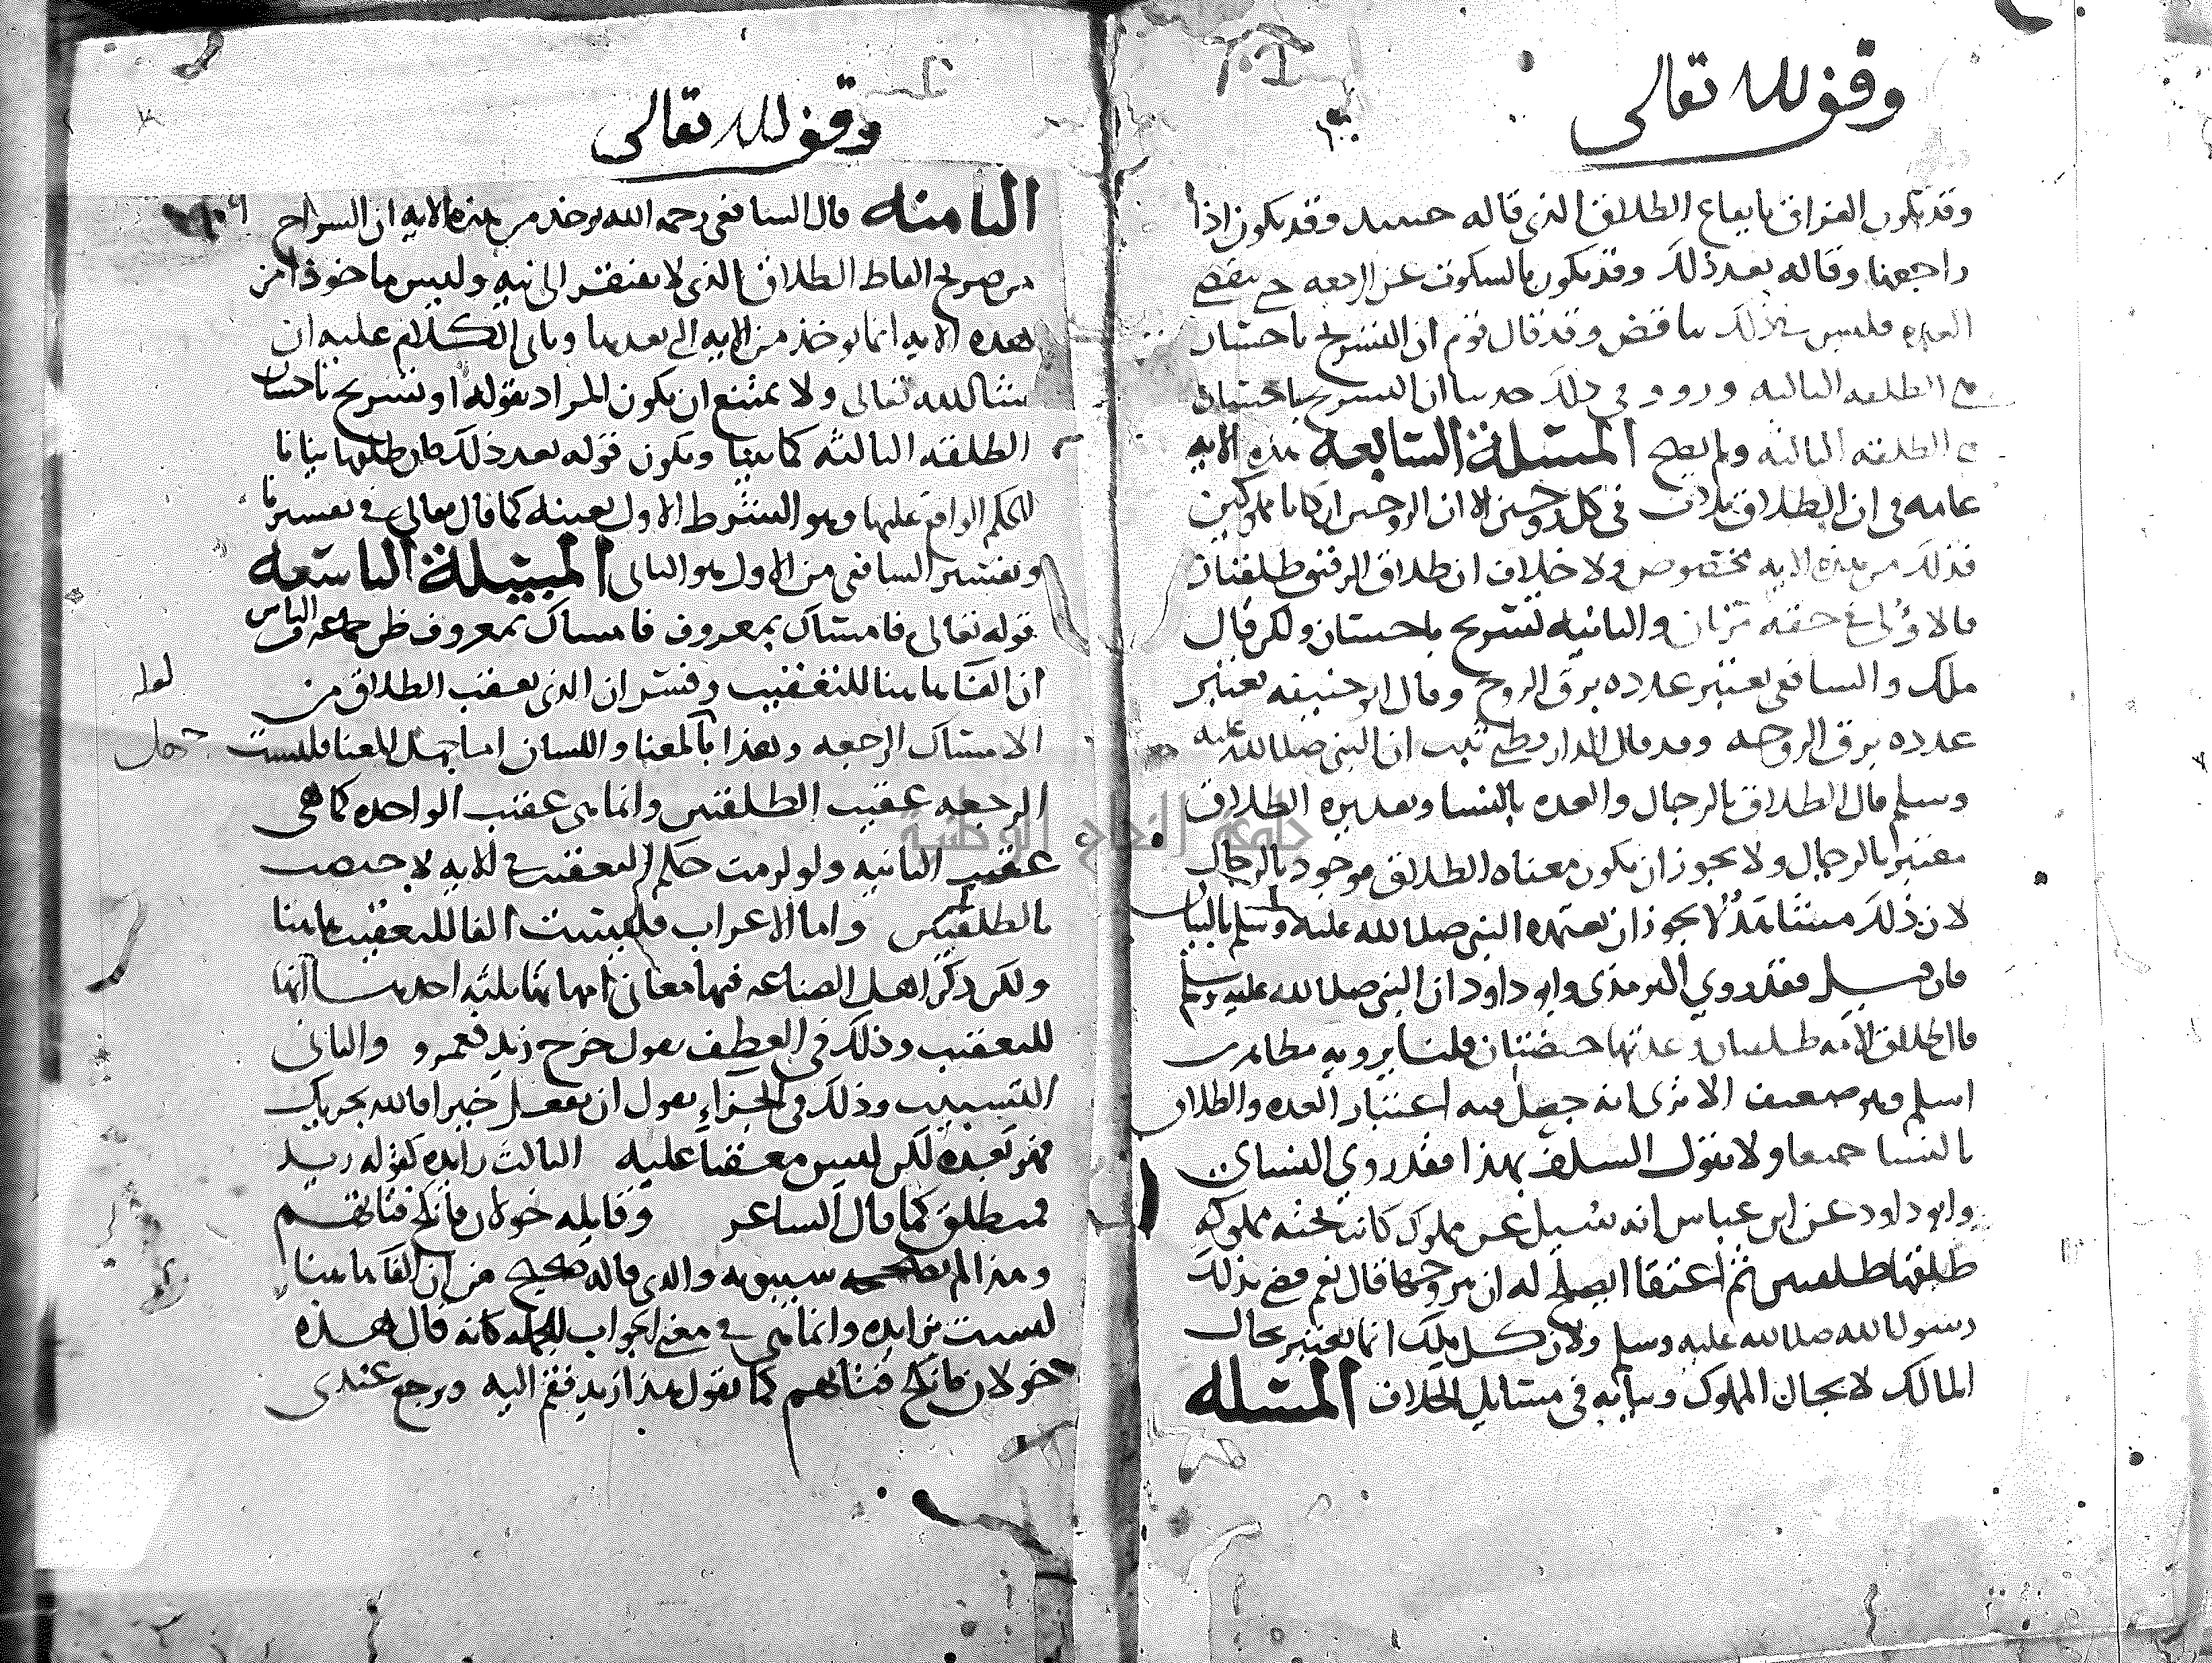 وقف لله تعالى
وقد يكون الفراق بايقاع الطلاق الذي قاله حينيد وقد يكون اذا
راجعها وقاله بعد ذلك وقد يكون بالسكوت عن الرجعه حتى تنقضي
العده فليس في ذلك تناقض وقد قال قوم ان التسريح باحسان
الطلقه الثالثه ورووا في ذلك حديثا ان التسريح باحسان
الطلقه الثالثه ولم يصح المسئلة السابعه هذه الايه
عامه في ان الطلاق ثلاث في كل زوجين الا ان الزوجين ان كانا مملوكين
فذلك من هذه الايه مخصوص ولا خلاف ان طلاق الرقيق طلقتان
فالاولى في حقه مرتان والثانيه تسريح باحسان ولكن قال
ملك والشافعي يعتبر عدده برق الزوج وقال ابو حنيفه يعتبر
عدده برق الزوجه وقد قال الدارقطني ثبت ان النبي صلا الله عليه
وسلم قال الطلاق بالرجال والعده بالنسا وتقديره الطلاق
معتبر بالرجال ولا يجوز ان يكون معناه الطلاق موجود بالرجال
لان ذلك مشاهد لا يجوز ان يعتمده النبي صلا الله عليه وسلم بالبيان
فان قيل فقد روي الترمذي وابو داود ان النبي صلا الله عليه وسلم
قال طلاق الامه طلقتان وعدتها حيضتان قلنا يرويه مظاهر بن
اسلم وهو ضعيف الا ترى انه جعل فيه اعتبار العده والطلاق
بالنسا جميعا ولا يقول السلف بهذا فقد روي النساي
وابو داود عن ابن عباس انه سيل عن مملوك كانت تحته مملوكه
طلقها طلقتين ثم اعتقا ايصلح له ان يتزوجها قال نعم قضى بذلك
رسول الله صلا الله عليه وسلم ولان كل ملك انما يعتبر بحال
المالك لا بحال المملوك وبيانه في مسايل الخلاف المسئله
وقف لله تعالى
الثامنه قال الشافعي رحمه الله يوخذ من هذه الايه ان السراح
من صريح الفاظ الطلاق الذي لا يفتقر الى نيه وليس ماخوذا من
هذه الايه انما يوخذ من الايه التي بعدها وياتي الكلام عليه ان
شا الله تعالى ولا يمتنع ان يكون المراد بقوله او تسريح باحسان
الطلقه الثالثه كما بينا ويكون قوله بعد ذلك فان طلقها بيانا
للحكم الواقع عليها وهو الشرط الاول بعينه كما قال تعالى في تفسير ما
وتفسير الشافعي من الاول هو الثاني المسئلة التاسعه
قوله تعالى فامساك بمعروف فامساك بمعروف ظن جماعه من الناس
ان الفا هاهنا للتعقيب وفسر ان الذي يعقب الطلاق من
الامساك الرجعه وهذا جهل بالمعنا واللسان اما جهل المعنا فليست
الرجعه عقيب الطلقتين وانما هي عقيب الواحده كما هي
عقيب الثانيه ولو لزمت حكم التعقيب في الايه لاختصت
بالطلقتين واما الاعراب فليست الفا للتعقيب هاهنا
ولكن ذكر اهل الصناعه فيها معاني امهاتها ثلثه احدها انها
للتعقيب وذلك في العطف تقول خرج زيد فعمرو والثاني
التسبيب وذلك في الجزاء تقول ان تفعل خيرا فالله يجزيك
فهو بعده لكن ليس معقبا عليه الثالث زايده كقوله زيد
فمنطلق كما قال الشاعر وقايله خولان فانكح فتاتهم
وهذا لم يصححه سيبويه والذي قاله صحيح من ان الفا هاهنا
ليست بزايده وانما هي في معنى الجواب للجمله كانه قال هذه
خولان فانكح فتاتهم كما تقول هذا زيد فقم اليه ويرجع عندي
لعله
جهل